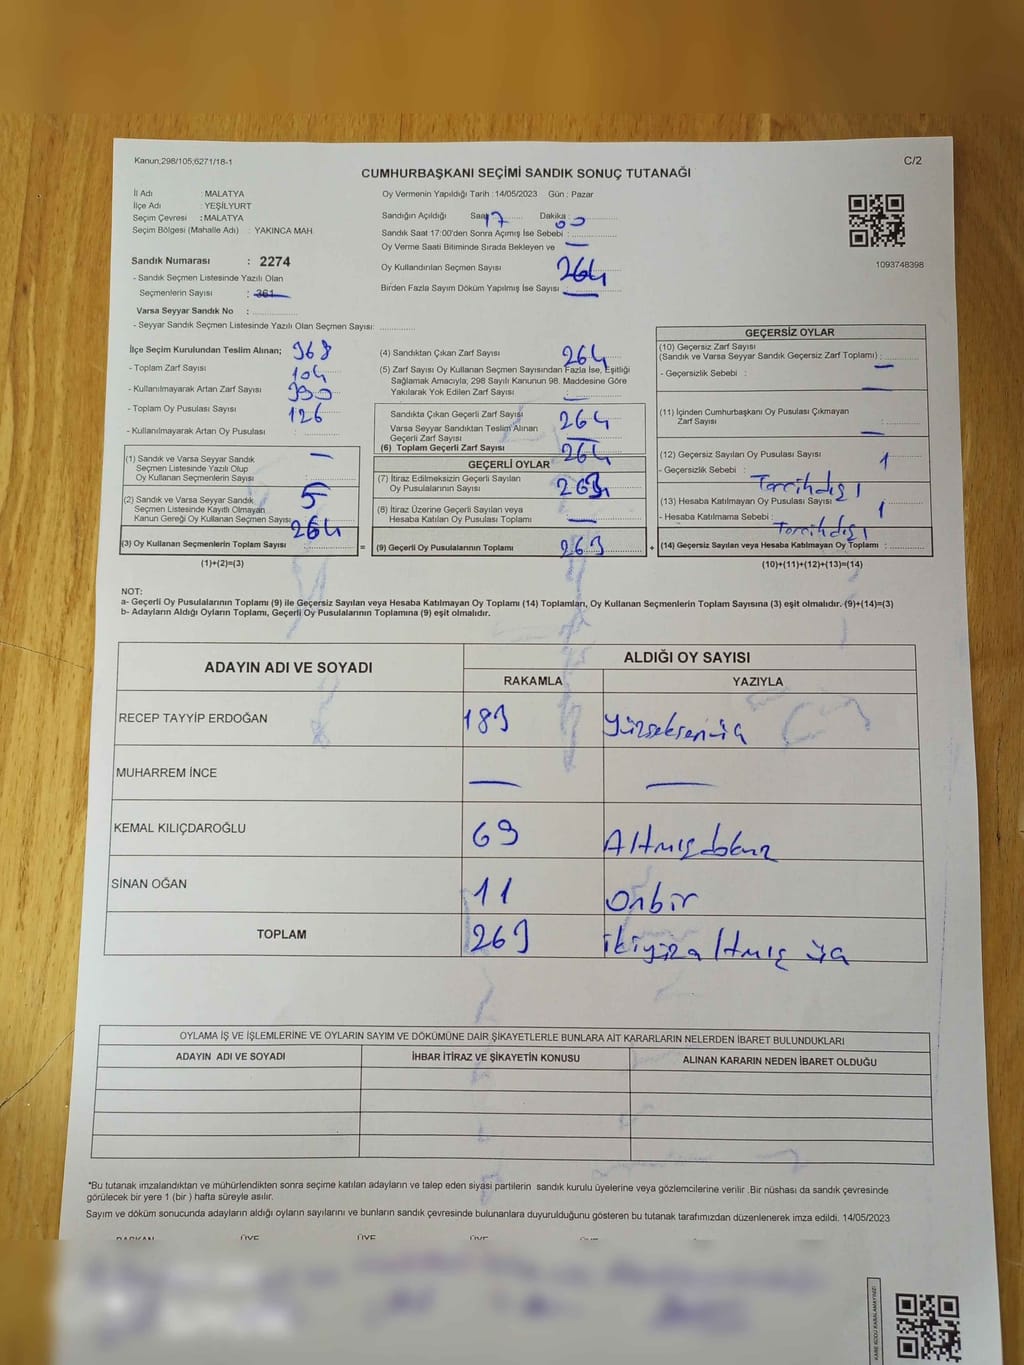 Kanun;298/105;6271/18-1
C/2
CUMHURBAŞKANI SEÇİMİ SANDIK SONUÇ TUTANAĞI
İl Adı : MALATYA
İlçe Adı : YEŞİLYURT
Seçim Çevresi : MALATYA
Seçim Bölgesi (Mahalle Adı) : YAKINCA MAH.
Sandık Numarası : 2274
- Sandık Seçmen Listesinde Yazılı Olan
Seçmenlerin Sayısı : 361
Varsa Seyyar Sandık No :
- Seyyar Sandık Seçmen Listesinde Yazılı Olan Seçmen Sayısı:
Oy Vermenin Yapıldığı Tarih : 14/05/2023 Gün : Pazar
Sandığın Açıldığı Saat 17 Dakika : 00
Sandık Saat 17:00'den Sonra Açımış İse Sebebi :
Oy Verme Saati Bitiminde Sırada Bekleyen ve —
Oy Kullandırılan Seçmen Sayısı 264
Birden Fazla Sayım Döküm Yapılmış İse Sayısı : —
1093748398
İlçe Seçim Kurulundan Teslim Alınan; 368
- Toplam Zarf Sayısı 104
- Kullanılmayarak Artan Zarf Sayısı 390
- Toplam Oy Pusulası Sayısı 126
- Kullanılmayarak Artan Oy Pusulası :
(1) Sandık ve Varsa Seyyar Sandık —
Seçmen Listesinde Yazılı Olup
Oy Kullanan Seçmenlerin Sayısı
(2) Sandık ve Varsa Seyyar Sandık 5
Seçmen Listesinde Kayıtlı Olmayan
Kanun Gereği Oy Kullanan Seçmen Sayısı
(3) Oy Kullanan Seçmenlerin Toplam Sayısı 264
(1)+(2)=(3)
(4) Sandıktan Çıkan Zarf Sayısı 264
(5) Zarf Sayısı Oy Kullanan Seçmen Sayısından Fazla İse, Eşitliği
Sağlamak Amacıyla; 298 Sayılı Kanunun 98. Maddesine Göre
Yakılarak Yok Edilen Zarf Sayısı : —
Sandıkta Çıkan Geçerli Zarf Sayısı 264
Varsa Seyyar Sandıktan Teslim Alınan
Geçerli Zarf Sayısı —
(6) Toplam Geçerli Zarf Sayısı 264
GEÇERLİ OYLAR
(7) İtiraz Edilmeksizin Geçerli Sayılan
Oy Pusulasının Sayısı 263
(8) İtiraz Üzerine Geçerli Sayılan veya
Hesaba Katılan Oy Pusulası Toplamı —
= (9) Geçerli Oy Pusulalarının Toplamı 263 +
GEÇERSİZ OYLAR
(10) Geçersiz Zarf Sayısı
(Sandık ve Varsa Seyyar Sandık Geçersiz Zarf Toplamı) : —
- Geçersizlik Sebebi : —
(11) İçinden Cumhurbaşkanı Oy Pusulası Çıkmayan
Zarf Sayısı : —
(12) Geçersiz Sayılan Oy Pusulası Sayısı 1
- Geçersizlik Sebebi :
(13) Hesaba Katılmayan Oy Pusulası Sayısı : 1
- Hesaba Katılmama Sebebi :
(14) Geçersiz Sayılan veya Hesaba Katılmayan Oy Toplamı :
(10)+(11)+(12)+(13)=(14)
NOT:
a- Geçerli Oy Pusulalarının Toplamı (9) ile Geçersiz Sayılan veya Hesaba Katılmayan Oy Toplamı (14) Toplamları, Oy Kullanan Seçmenlerin Toplam Sayısına (3) eşit olmalıdır. (9)+(14)=(3)
b- Adayların Aldığı Oyların Toplamı, Geçerli Oy Pusulalarının Toplamına (9) eşit olmalıdır.
ADAYIN ADI VE SOYADI ALDIĞI OY SAYISI
RAKAMLA YAZIYLA
RECEP TAYYİP ERDOĞAN 183 Yüzseksenüç
MUHARREM İNCE — —
KEMAL KILIÇDAROĞLU 69 Altmışdokuz
SİNAN OĞAN 11 Onbir
TOPLAM 263 ikiyüzaltmış üç
OYLAMA İŞ VE İŞLEMLERİNE VE OYLARIN SAYIM VE DÖKÜMÜNE DAİR ŞİKAYETLERLE BUNLARA AİT KARARLARIN NELERDEN İBARET BULUNDUKLARI
ADAYIN ADI VE SOYADI İHBAR İTİRAZ VE ŞİKAYETİN KONUSU ALINAN KARARIN NEDEN İBARET OLDUĞU
*Bu tutanak imzalandıktan ve mühürlendikten sonra seçime katılan adayların ve talep eden siyasi partilerin sandık kurulu üyelerine veya gözlemcilerine verilir .Bir nüshası da sandık çevresinde
görülecek bir yere 1 (bir ) hafta süreyle asılır.
Sayım ve döküm sonucunda adayların aldığı oyların sayılarını ve bunların sandık çevresinde bulunanlara duyurulduğunu gösteren bu tutanak tarafımızdan düzenlenerek imza edildi. 14/05/2023
BAŞKAN ÜYE ÜYE ÜYE
KARE KODU KARALAMAYINIZ!